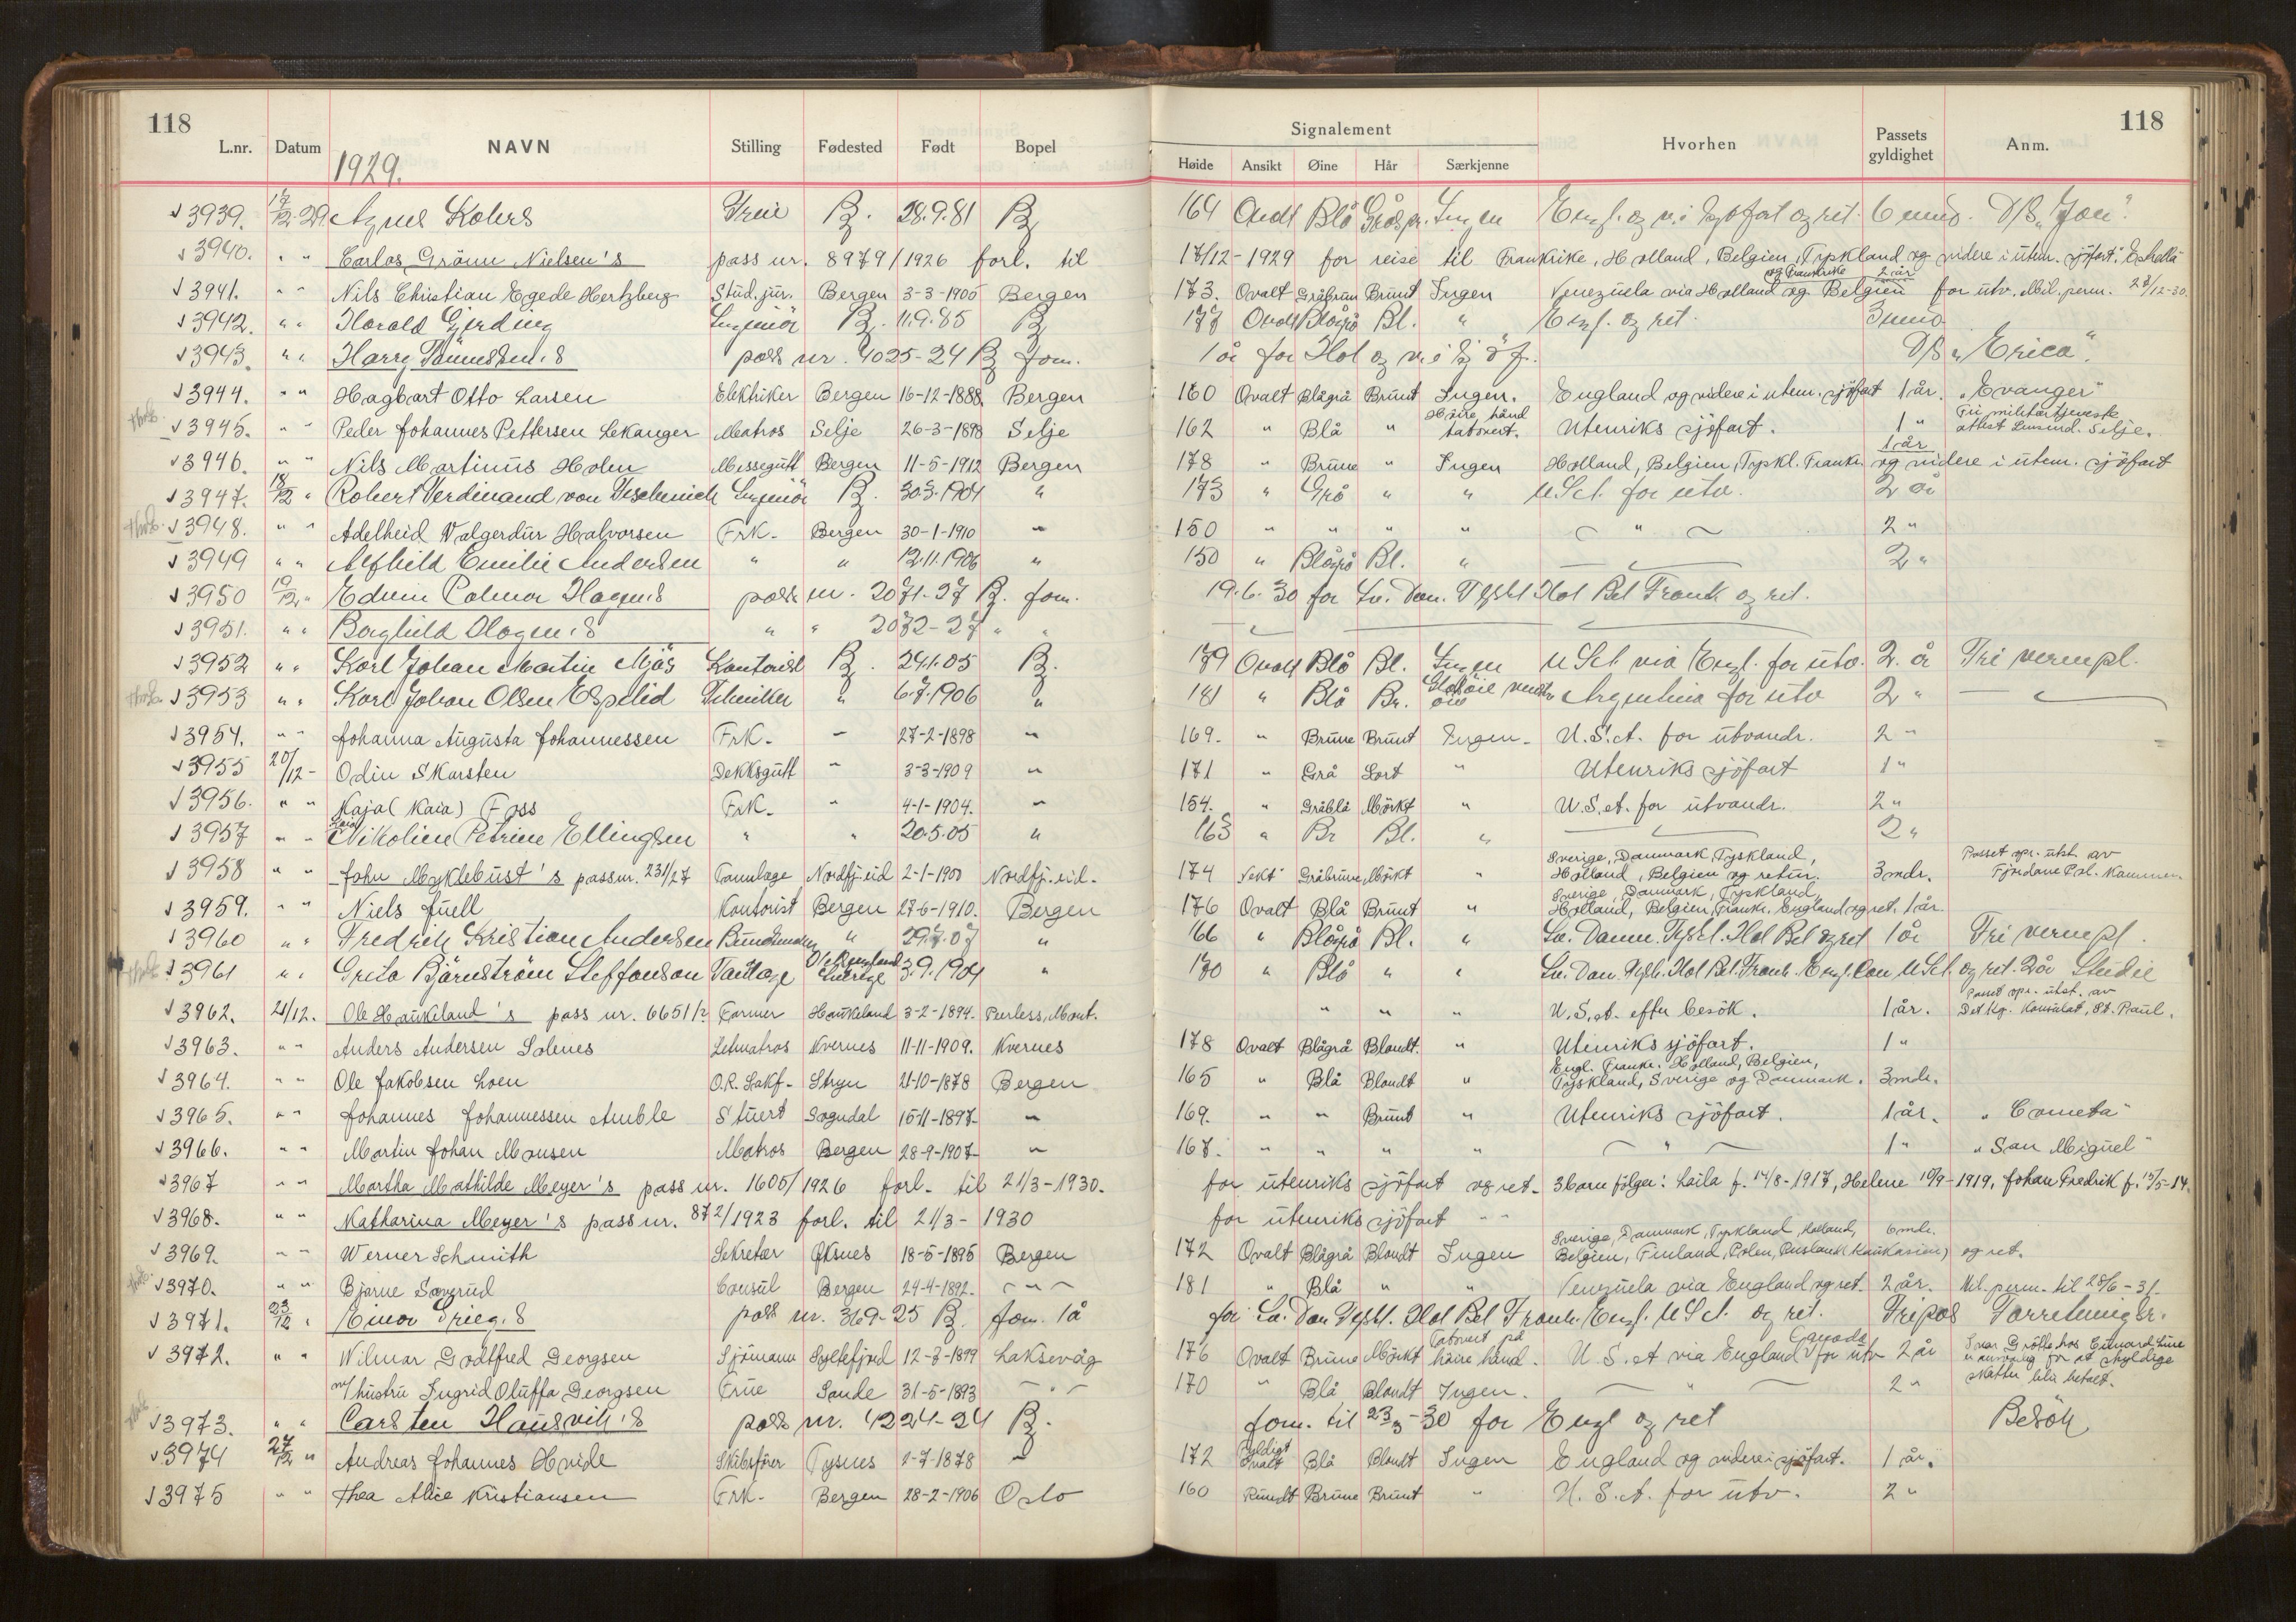 118 118
Signalement
L.nr. Datum NAVN Stilling Fødested Født Bopel Høide Ansikt Øine Hår Særkjenne Hvorhen Passets gyldighet Anm.
1929.
3939. 17/12-29. Agnes Kohrs Frue B. 28.9.81 B 164 Ovalt Blå Ingen Engl. og v. i sjøfart og ret. 6 mnd. D/S "Jon".
3940. " " Carlos Gränn Nielsen's pass nr. 8979/1926 forl. til 17/12-1929 for reise til Frankrike, Holland, Belgien, Tyskland og videre i utenr. sjöfart.
3941. " " Nils Christian Egede Hertzberg Stud. jur. Bergen 3-3-1905 Bergen 173. Ovalt Gråbrun Brunt Ingen Venezuela via Holland og Belgien og Frankrike 2 år for utv. Mil. perm. 27/12-30.
3942. " " Harald Gjerding Ingeniör B. 11.9.85 B 177 Ovalt Blågrå Bl. " Engl. og ret. 3 mnd
3943. " " Harry Tönnesen's pass nr. 4025-24 B forn. 1 år for Hol og v. i sjöf. D/S "Erica".
3944. " " Hagbart Otto Larsen Elektriker Bergen 16-12-1888. Bergen 160 Ovalt Blågrå Brunt Ingen. England og videre i utenr. sjöfart 1 år. "Evanger"
3945. " " Peder Johannes Pettersen Lekanger Matros Selje 26-3-1898 Selje 162 " Blå " Höire hånd tatovert. Utenriks sjöfart. 1 " Fri militærtjeneste attest Lensmd. Selje.
3946. " " Nils Martinus Holen Messegutt Bergen 11-5-1912 Bergen 178 " Brune " Ingen Holland, Belgien, Tyskl. Frankr. og videre i utenr. sjöfart 1 år
3947. 18/12 " Robert Ferdinand von Ingeniör B. 30.3.1904 " 173 " Grå " " U.S.A. for utv. 2 år
3948. " " Adelheid Valgerdur Halvorsen Frk. Bergen 30-1-1910 " 150 " " " " " 2 "
3949 " " Alfhild Emilie Andersen " " 12.11.1906 " 150 " Blågrå Bl. " " 2 "
3950 19/12 " Edvin Palmar Hagen's pass nr. 2071-27 B. forn. 19.6.30 for Sv. Dan. Tyskl Hol Bel Frank og ret.
3951. " " Borghild Hagen's " " 2072-27 " "
3952 " " Karl Johan Martin Mjös Kontorist B. 24.1.05 B. 179 Ovalt Blå Bl. Ingen U.S.A. via Engl. for utv. 2. år Fri vernepl.
3953 " " Karl Johan Olsen Espelid Tekniker " 6.7.1906 " 181 " Blå Br. Argentina for utv 2 " "
3954. " " Johanna Augusta Johannessen Frk. " 27-2-1898 " 169. " Brune Brunt Ingen. U.S.A. for utvandr. 2 "
3955 20/12- Odin Skarsten Dekksgutt " 3-3-1909 " 171 " Grå Sort " Utenriks sjöfart 1 "
3956. " " Kaja (Kaia) Foss Frk. " 4-1-1904. " 154. " Gråblå Mörkt " U.S.A. for utvandr. 2 "
3957 " " Nikoline Petrine Ellingsen " " 20.5.05 " 163 " Br Bl. " " 2 "
3958 " " John Myklebust's passnr. 231/27 Tannlæge Nordfj.eid 2-1-1900 Nordfj.eid. 174 Gråbrune Mörkt " Sverige, Danmark, Tyskland, Holland, Belgien og retur. 3 mdr. Passet opr. utst. av Fjordane Pol. kammer
3959. " " Niels Juell Kontorist Bergen 27-6-1910. Bergen 176 Ovalt Blå Brunt " Sverige, Danmark, Tyskland, Holland, Belgien, Frankr. England og ret. 1 år.
3960 " " Fredrik Kristian Andersen " 29.7.07 " 166 " Blågrå Bl. " Sv. Danm. Tyskl. Hol Bel og ret 1 år Fri vernepl.
3961 " " Greta Bjärnström Steffonson Tanlæge Sverige 3.9.1904 " 170 " Blå " " Sv. Dan. Tyskl. Hol Bel. Frank. Engl. Can U.S.A. og ret. 2 år Studie
3962. 21/12. Ole Haukeland's pass nr. 6651/ Farmer Haukeland 3-2-1894. Peerless, Mont. " " " U.S.A. efter besök. 1 år. Passet opr. utst. av Det Kg. Konsulat, St. Paul.
3963. " " Anders Andersen Solenes Letmatros Kvernes 11-11-1909. Kvernes 178 Ovalt Blågrå Blondt. " Utenriks sjöfart. 1 "
3964. " " Ole Jakobsen Loen O.R. Sakf. Stryn 21-10-1878 Bergen 165 " Blå Blondt " Engl. Frankr. Holland, Belgien, Tyskland, Sverige og Danmark. 3 mdr.
3965. " " Johannes Johannessen Amble Stuert Sogndal 15-11-1897. " 169. " " Brunt " Utenriks sjöfart. 1 år. "Cometa"
3966. " " Martin Johan Monsen Matros Bergen 28-9-1907 " 167. " " " " " 1 " "San Miguel"
3967 " " Martha Mathilde Meyer's pass nr. 1605/1926 forl. til 21/3-1930. for utenriks sjöfart og ret. 3 barn fölger: Laila f. 14/8-1917, Helene 10/9-1919, Johan Fredrik f. 15/5-14.
3968. " " Katharina Meyer's pass nr. 872/1923 forl. til 21/3-1930 for utenriks sjöfart " "
3969. " " Werner Schmith Sekretær Öksnes 18-5-1895 Bergen 172 Ovalt Blågrå Blondt Ingen Sverige, Danmark, Tyskland, Holland, Belgien, Finland, Polen, Kaukasien) og ret. 6 mdr.
3970. " " Bjarne Consul Bergen 24-4-1892. " 181 " Blå " " Venezuela via England og ret. 2 år. Mil. perm. til 28/6-31.
3971. 23/12 " Einar Grieg's pass nr. 369-25 B. forn. 1 å for Sv. Dan Tyskl. Hol Bel Frank. Engl. U.S.A. og ret. Fripas Forretningsr.
3972. " " Wilmar Godtfred Georgsen Sjömann Syltefjord 12-7-1899 Laksevåg 176 Ovalt Brune Mörkt Tatovert på höire hånd. U.S.A via England Canada for utv 2 år
m/ hustru Ingrid Oluffa Georgsen Frue Sande 31-5-1893 " 170 " Blå Blondt Ingen. " 2 " skatter blir betalt.
3973. " " Carsten Hausvik's pass nr. 4224-24 B. forn. til 23/3-30 for Engl og ret Besök
3974 27/12 " Andreas Johannes Hvide Skibsförer Tysnes 2-7-1878 " 172 Fyldigt Ovalt Blå Blondt Ingen England og videre i sjöfart. 1 år.
3975 " " Thea Alice Kristiansen Frk. Bergen 28-2-1906 Oslo 160 Rundt Brune Brunt " U.S.A. for utv. 2 "